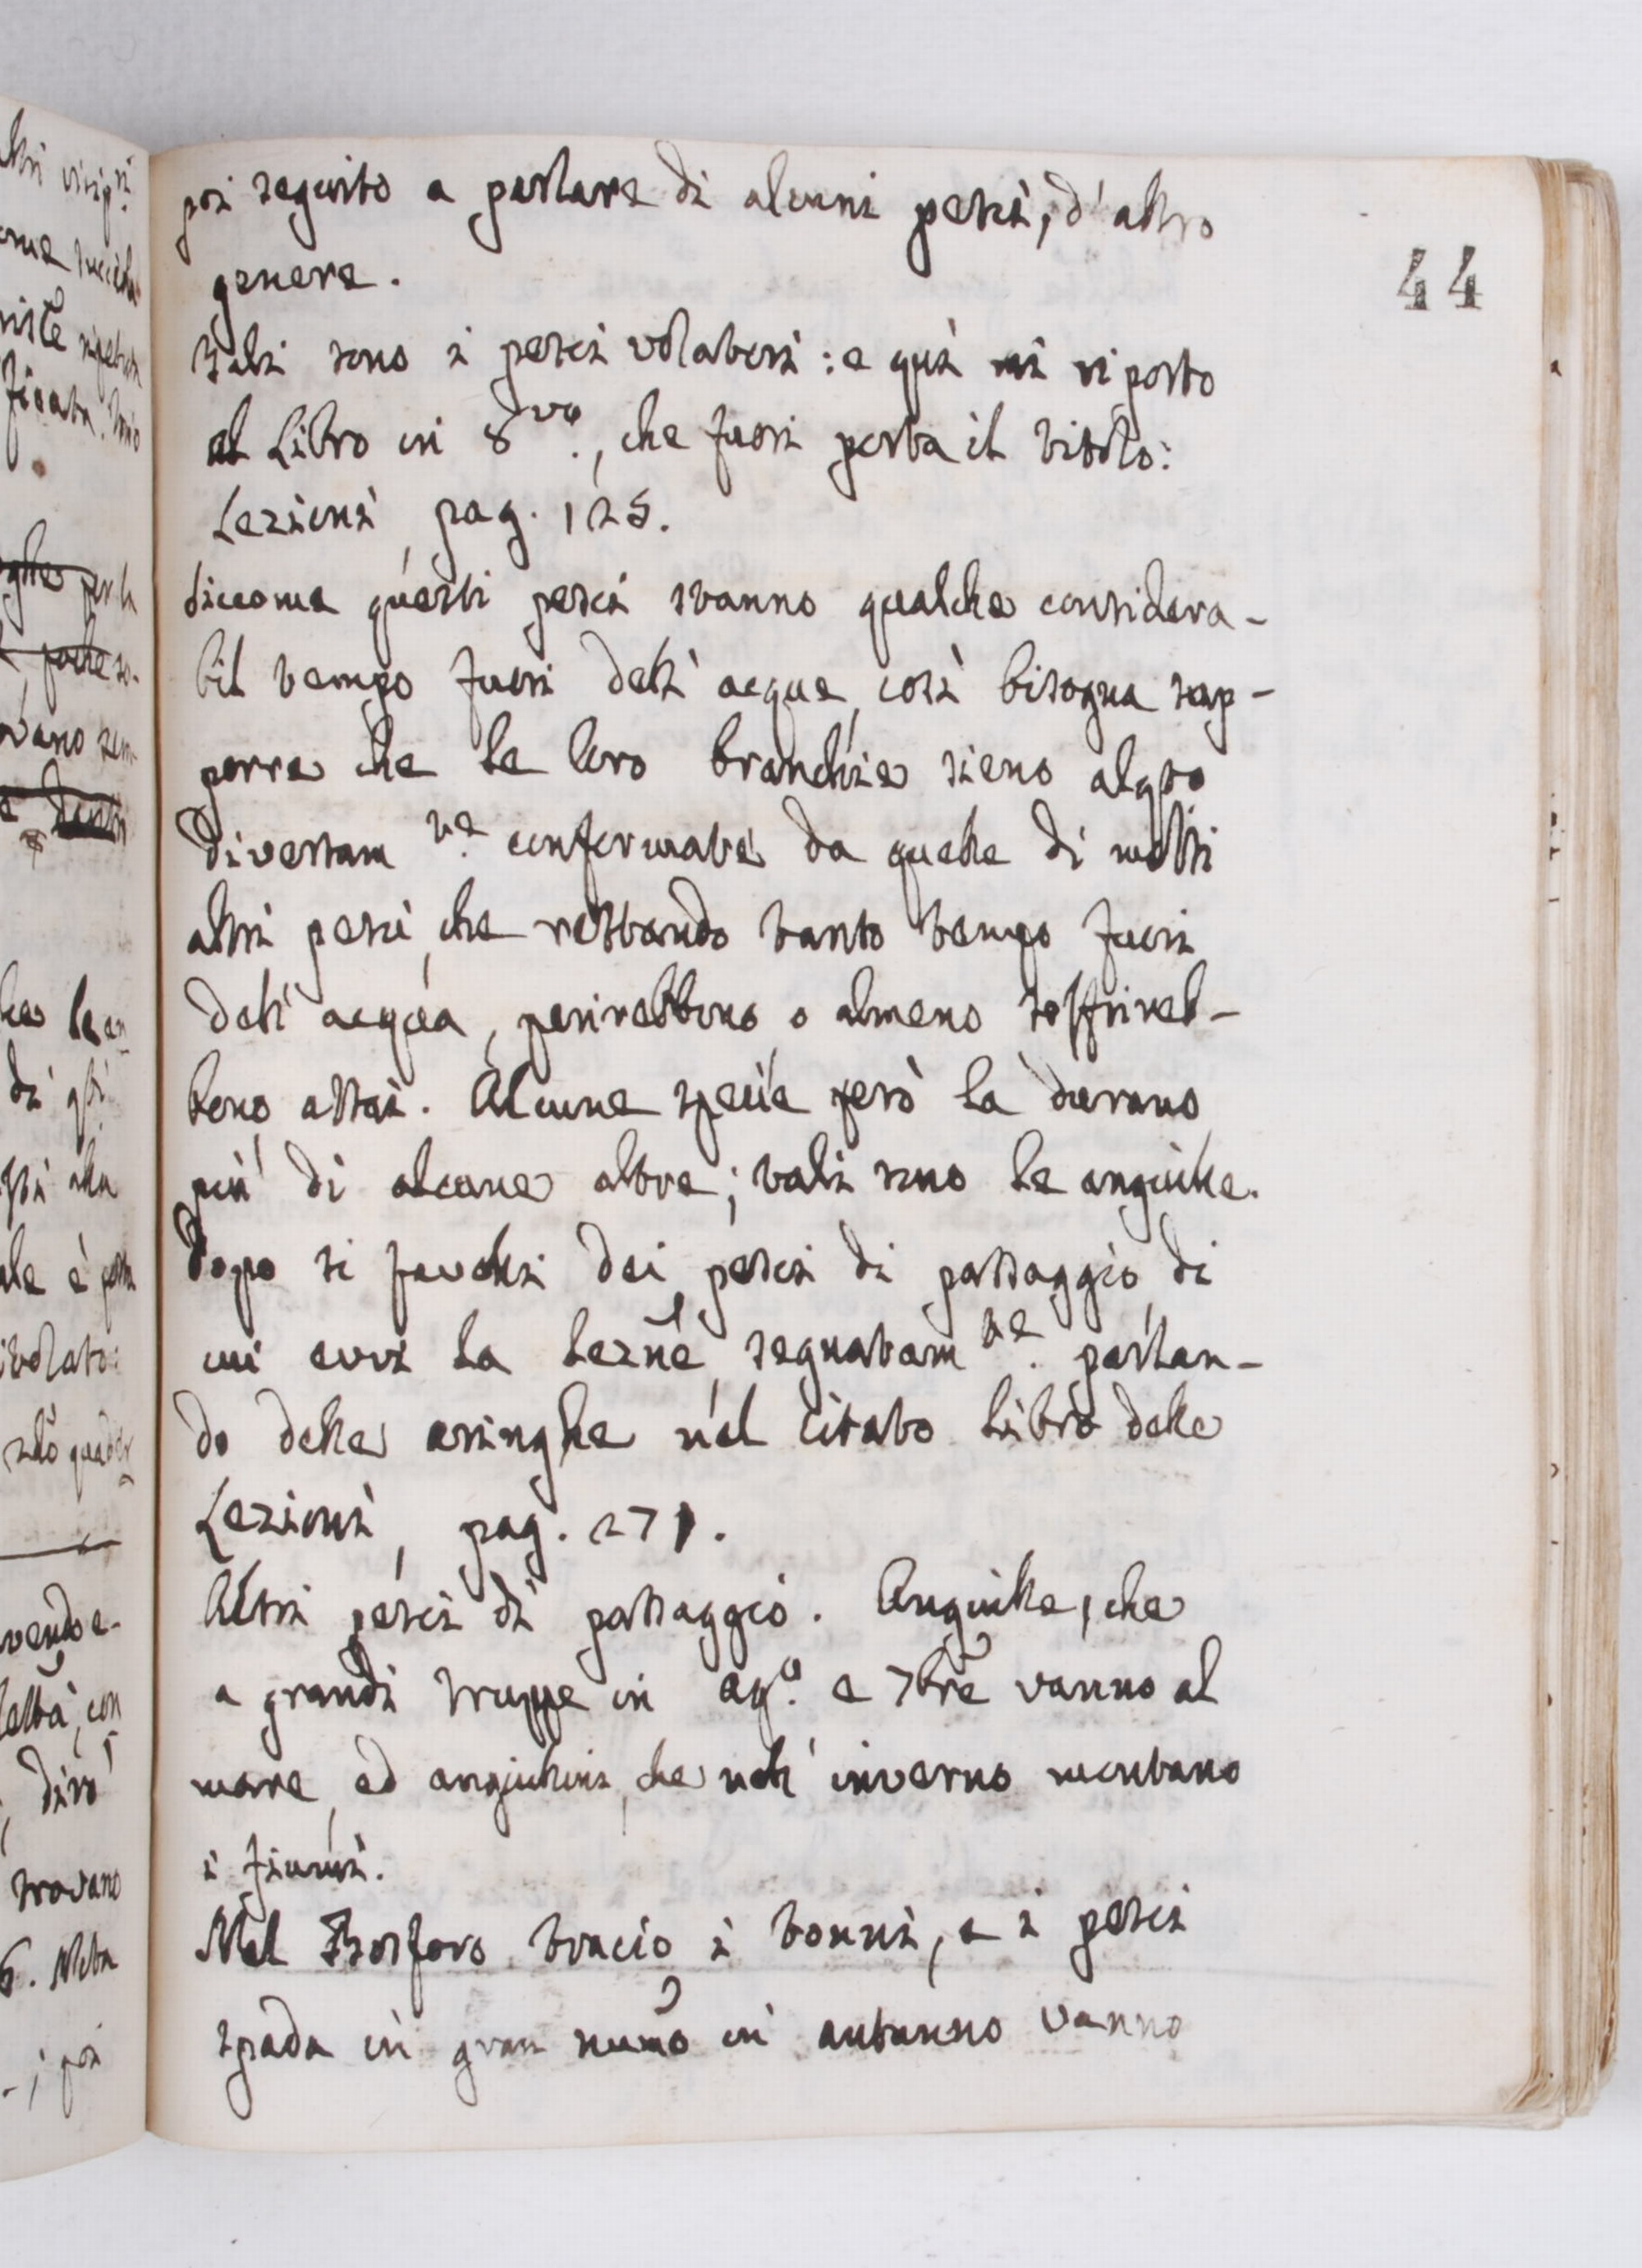 poi seguito a parlare di alcuni pesci, d'altro
genere.
Tali sono i pesci volatori: e quì mi riporto
al Libro in 8.vo, che fuori porta il titolo:
Lezioni, pag. 125.
Siccome questi pesci stanno qualche considera-
bil tempo fuori dell'acqua, così bisogna sup-
porre che le loro branchie sieno alqto
diversam.te conformate da quelle di molti
altri pesci, che restando tanto tempo fuori
dell'acqua, perirebbono o almeno soffrireb-
bono assai. Alcune specie però la durano
più di alcune altre; tali sono le anguille.
Dopo si favelli dei pesci di passaggio, di
cui evvi la lezne, segnatam.te parlan-
do delle aringhe nel citato Libro delle
Lezioni, pag. 271.
Altri pesci di passaggio. Anguille, che
a grandi truppe in ag.o e 7bre vanno al
mare, ed anguilline, che nell'inverno montano
i fiumi.
Nel Bosforo tracio i tonni, e i pesci
spada in gran numo in autunno vanno
44